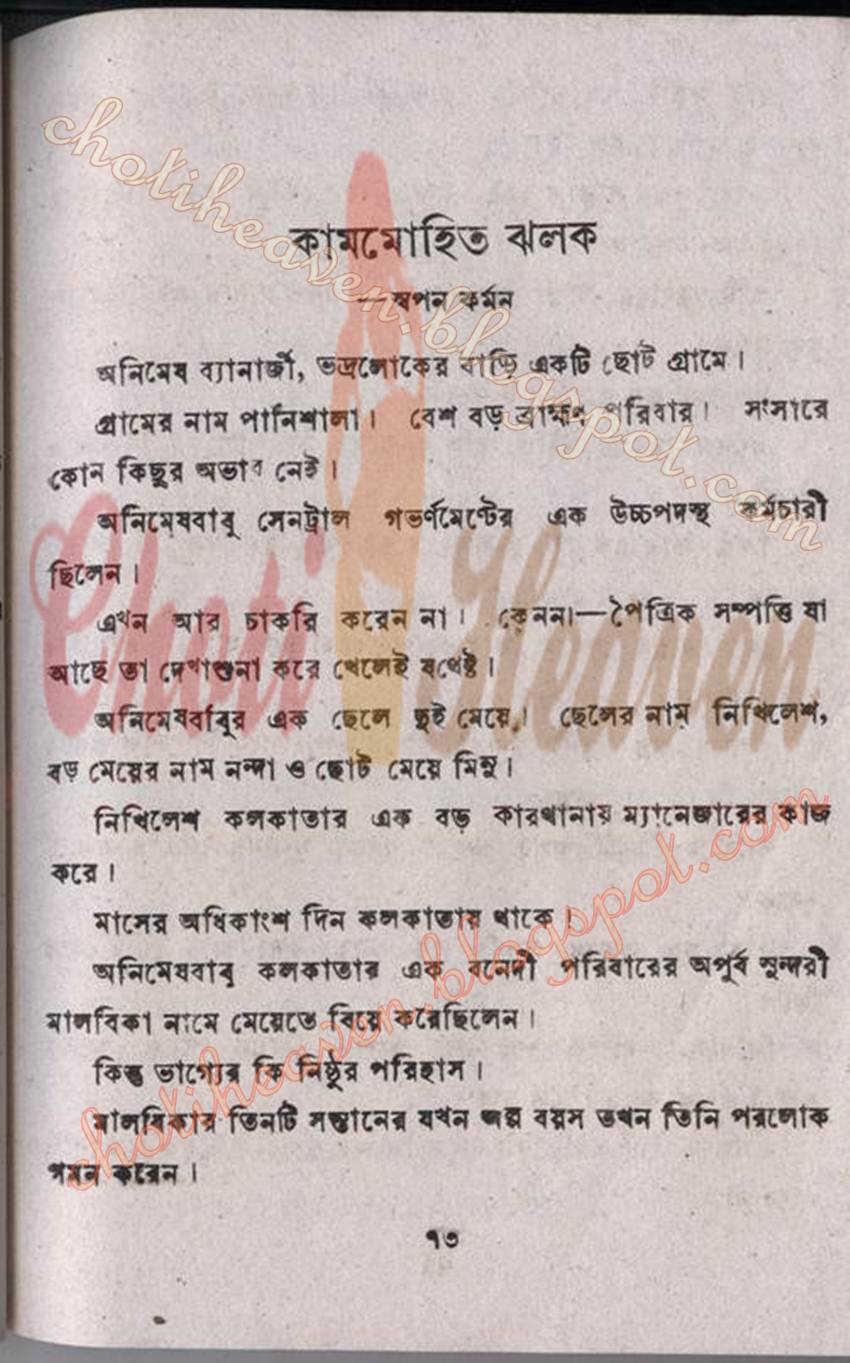 কামমোহিত ঝলক
—স্বপন কর্মন
অনিমেষ ব্যানার্জী, ভদ্রলোকের বাড়ি একটি ছোট গ্রামে।
গ্রামের নাম পানিশালা। বেশ বড় ব্রাহ্মণ পরিবার। সংসারে
কোন কিছুর অভাব নেই।
অনিমেষবাবু সেনট্রাল গভর্ণমেণ্টের এক উচ্চপদস্থ কর্মচারী
ছিলেন।
এখন আর চাকরি করেন না। কেননা—পৈত্রিক সম্পত্তি যা
আছে তা দেখাশুনা করে খেলেই যথেষ্ট।
অনিমেষবাবুর এক ছেলে দুই মেয়ে। ছেলের নাম নিখিলেশ,
বড় মেয়ের নাম নন্দা ও ছোট মেয়ে মিনু।
নিখিলেশ কলকাতার এক বড় কারখানায় ম্যানেজারের কাজ
করে।
মাসের অধিকাংশ দিন কলকাতায় থাকে।
অনিমেষবাবু কলকাতার এক বনেদী পরিবারের অপূর্ব সুন্দরী
মালবিকা নামে মেয়েতে বিয়ে করেছিলেন।
কিন্তু ভাগ্যের কি নিষ্ঠুর পরিহাস।
মালবিকার তিনটি সন্তানের যখন অল্প বয়স তখন তিনি পরলোক
গমন করেন।
১৩
chotiheaven.blogspot.com
Choti Heaven
chotiheaven.blogspot.com